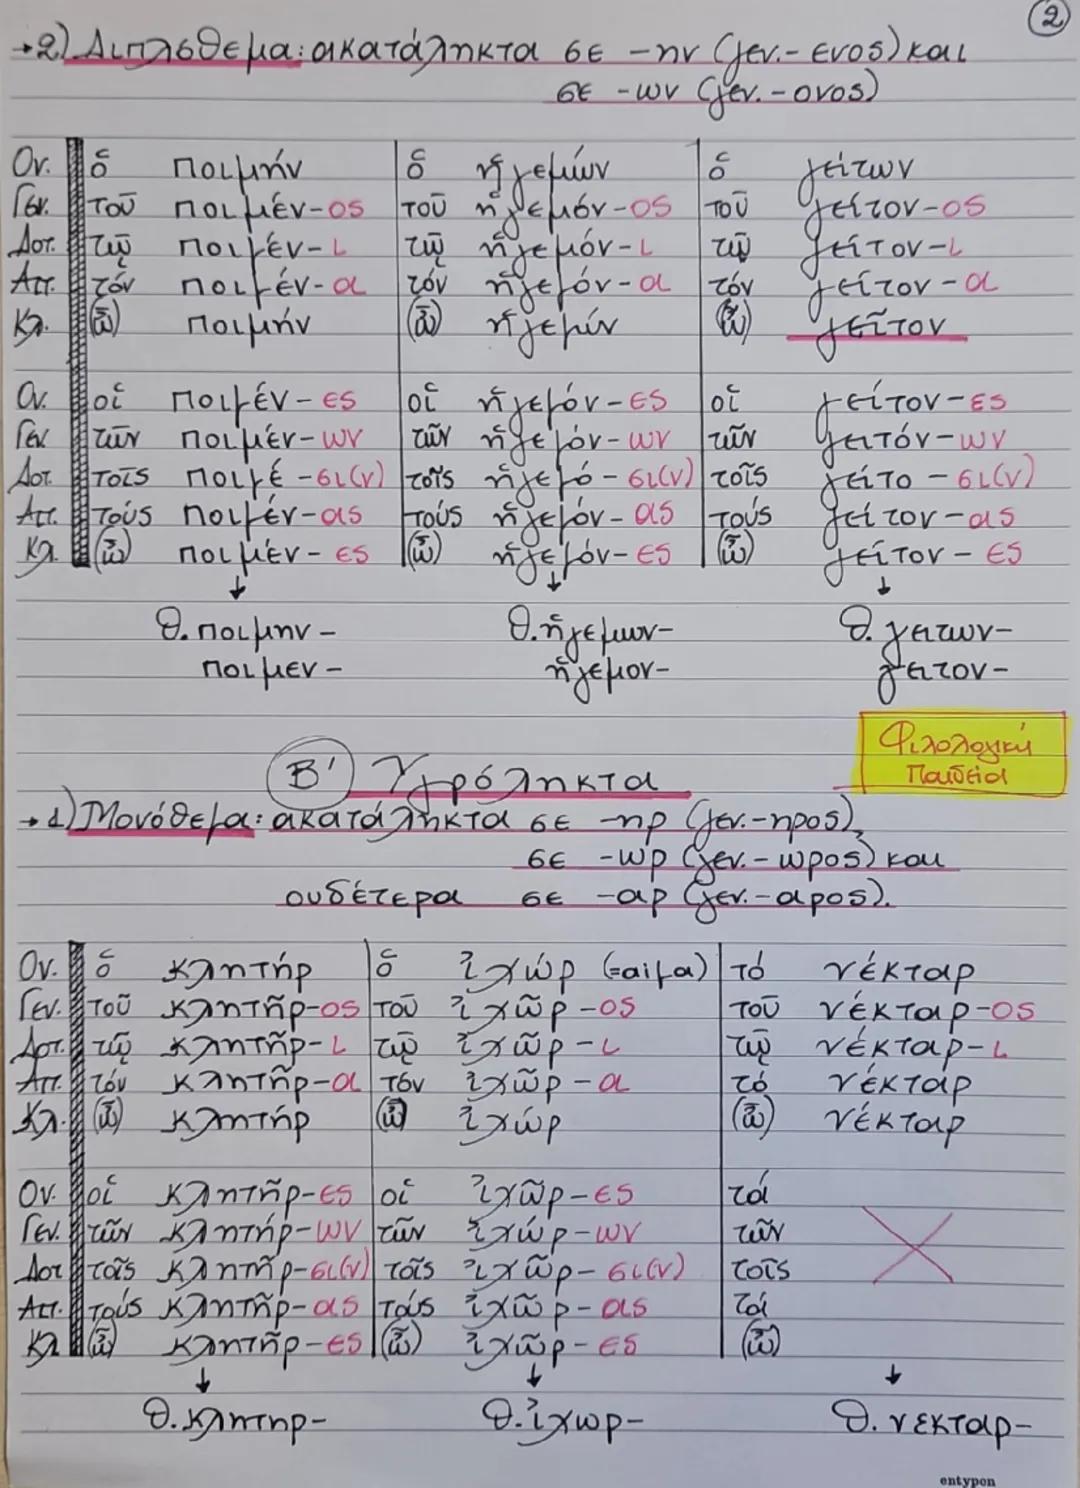 ②
→2) Διπλόθεμα: ακατάληκτα σε -ην (γεν.-ενος) και
σε -ων (γεν.-ονος)
Ον. ὁ ποιμήν ὁ ἡγεμών ὁ γείτων
Γεν. τοῦ ποιμέν-ος τοῦ ἡγεμόν-ος τοῦ γείτον-ος
Δοτ. τῷ ποιμέν-ι τῷ ἡγεμόν-ι τῷ γείτον-ι
Αιτ. τόν ποιμέν-α τόν ἡγεμόν-α τόν γείτον-α
Κλ. (ὦ) ποιμήν (ὦ) ἡγεμών (ὦ) γεῖτον
Ον. οἱ ποιμέν-ες οἱ ἡγεμόν-ες οἱ γείτον-ες
Γεν τῶν ποιμέν-ων τῶν ἡγεμόν-ων τῶν γειτόν-ων
Δοτ. τοῖς ποιμέ-σι(ν) τοῖς ἡγεμό-σι(ν) τοῖς γείτο-σι(ν)
Αιτ. τούς ποιμέν-ας τούς ἡγεμόν-ας τούς γείτον-ας
Κλ. (ὦ) ποιμέν-ες (ὦ) ἡγεμόν-ες (ὦ) γείτον-ες
↓ ↓ ↓
θ. ποιμην- θ. ἡγεμων- θ. γειτων-
ποιμεν- ἡγεμον- γειτον-
Φιλολογική
Παιδεία
Β' Υγρόληκτα
→1) Μονόθεμα: ακατάληκτα σε -ηρ (γεν.-ηρος),
σε -ωρ (γεν.-ωρος) και
ουδέτερα σε -αρ (γεν.-αρος).
Ον. ὁ κλητήρ ὁ ἰχώρ (=αίμα) τό νέκταρ
Γεν. τοῦ κλητῆρ-ος τοῦ ἰχῶρ-ος τοῦ νέκταρ-ος
Δοτ. τῷ κλητῆρ-ι τῷ ἰχῶρ-ι τῷ νέκταρ-ι
Αιτ. τόν κλητῆρ-α τόν ἰχῶρ-α τό νέκταρ
Κλ. (ὦ) κλητήρ (ὦ) ἰχώρ (ὦ) νέκταρ
Ον. οἱ κλητῆρ-ες οἱ ἰχῶρ-ες τά
Γεν. τῶν κλητήρ-ων τῶν ἰχώρ-ων τῶν
Δοτ τοῖς κλητῆρ-σι(ν) τοῖς ἰχῶρ-σι(ν) τοῖς
Αιτ. τούς κλητῆρ-ας τούς ἰχῶρ-ας τά
Κλ (ὦ) κλητῆρ-ες (ὦ) ἰχῶρ-ες (ὦ)
↓ ↓ ↓
θ. κλητηρ- θ. ἰχωρ- θ. νεκταρ-
entypon